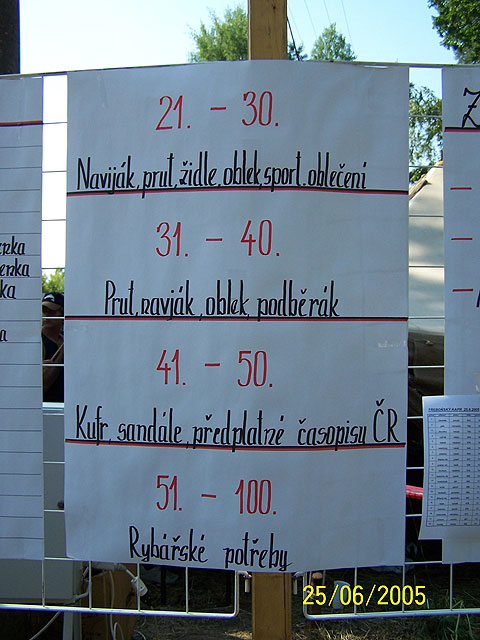 21. - 30.
Naviják, prut, židle, oblek, sport. oblečení
31. - 40.
Prut, naviják, oblek, podběrák
41. - 50.
Kufr, sandále, předplatné časopisu ČR
51. - 100.
Rybářské potřeby
25/06/2005